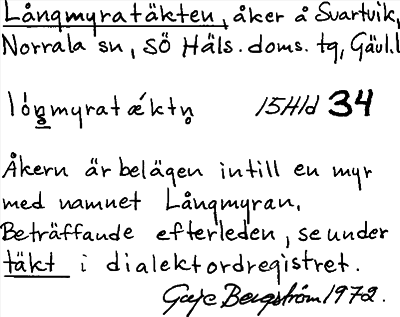 Långmyratäkten, åker å Svartvik,
Norrala sn, SÖ Häls. doms. tg, Gävl.l
lóṉgmyratǽktn̥ 15H1d 34
Åkern är belägen intill en myr
med namnet Långmyran.
Beträffande efterleden, se under
täkt i dialektordregistret.
Bergström 1972.